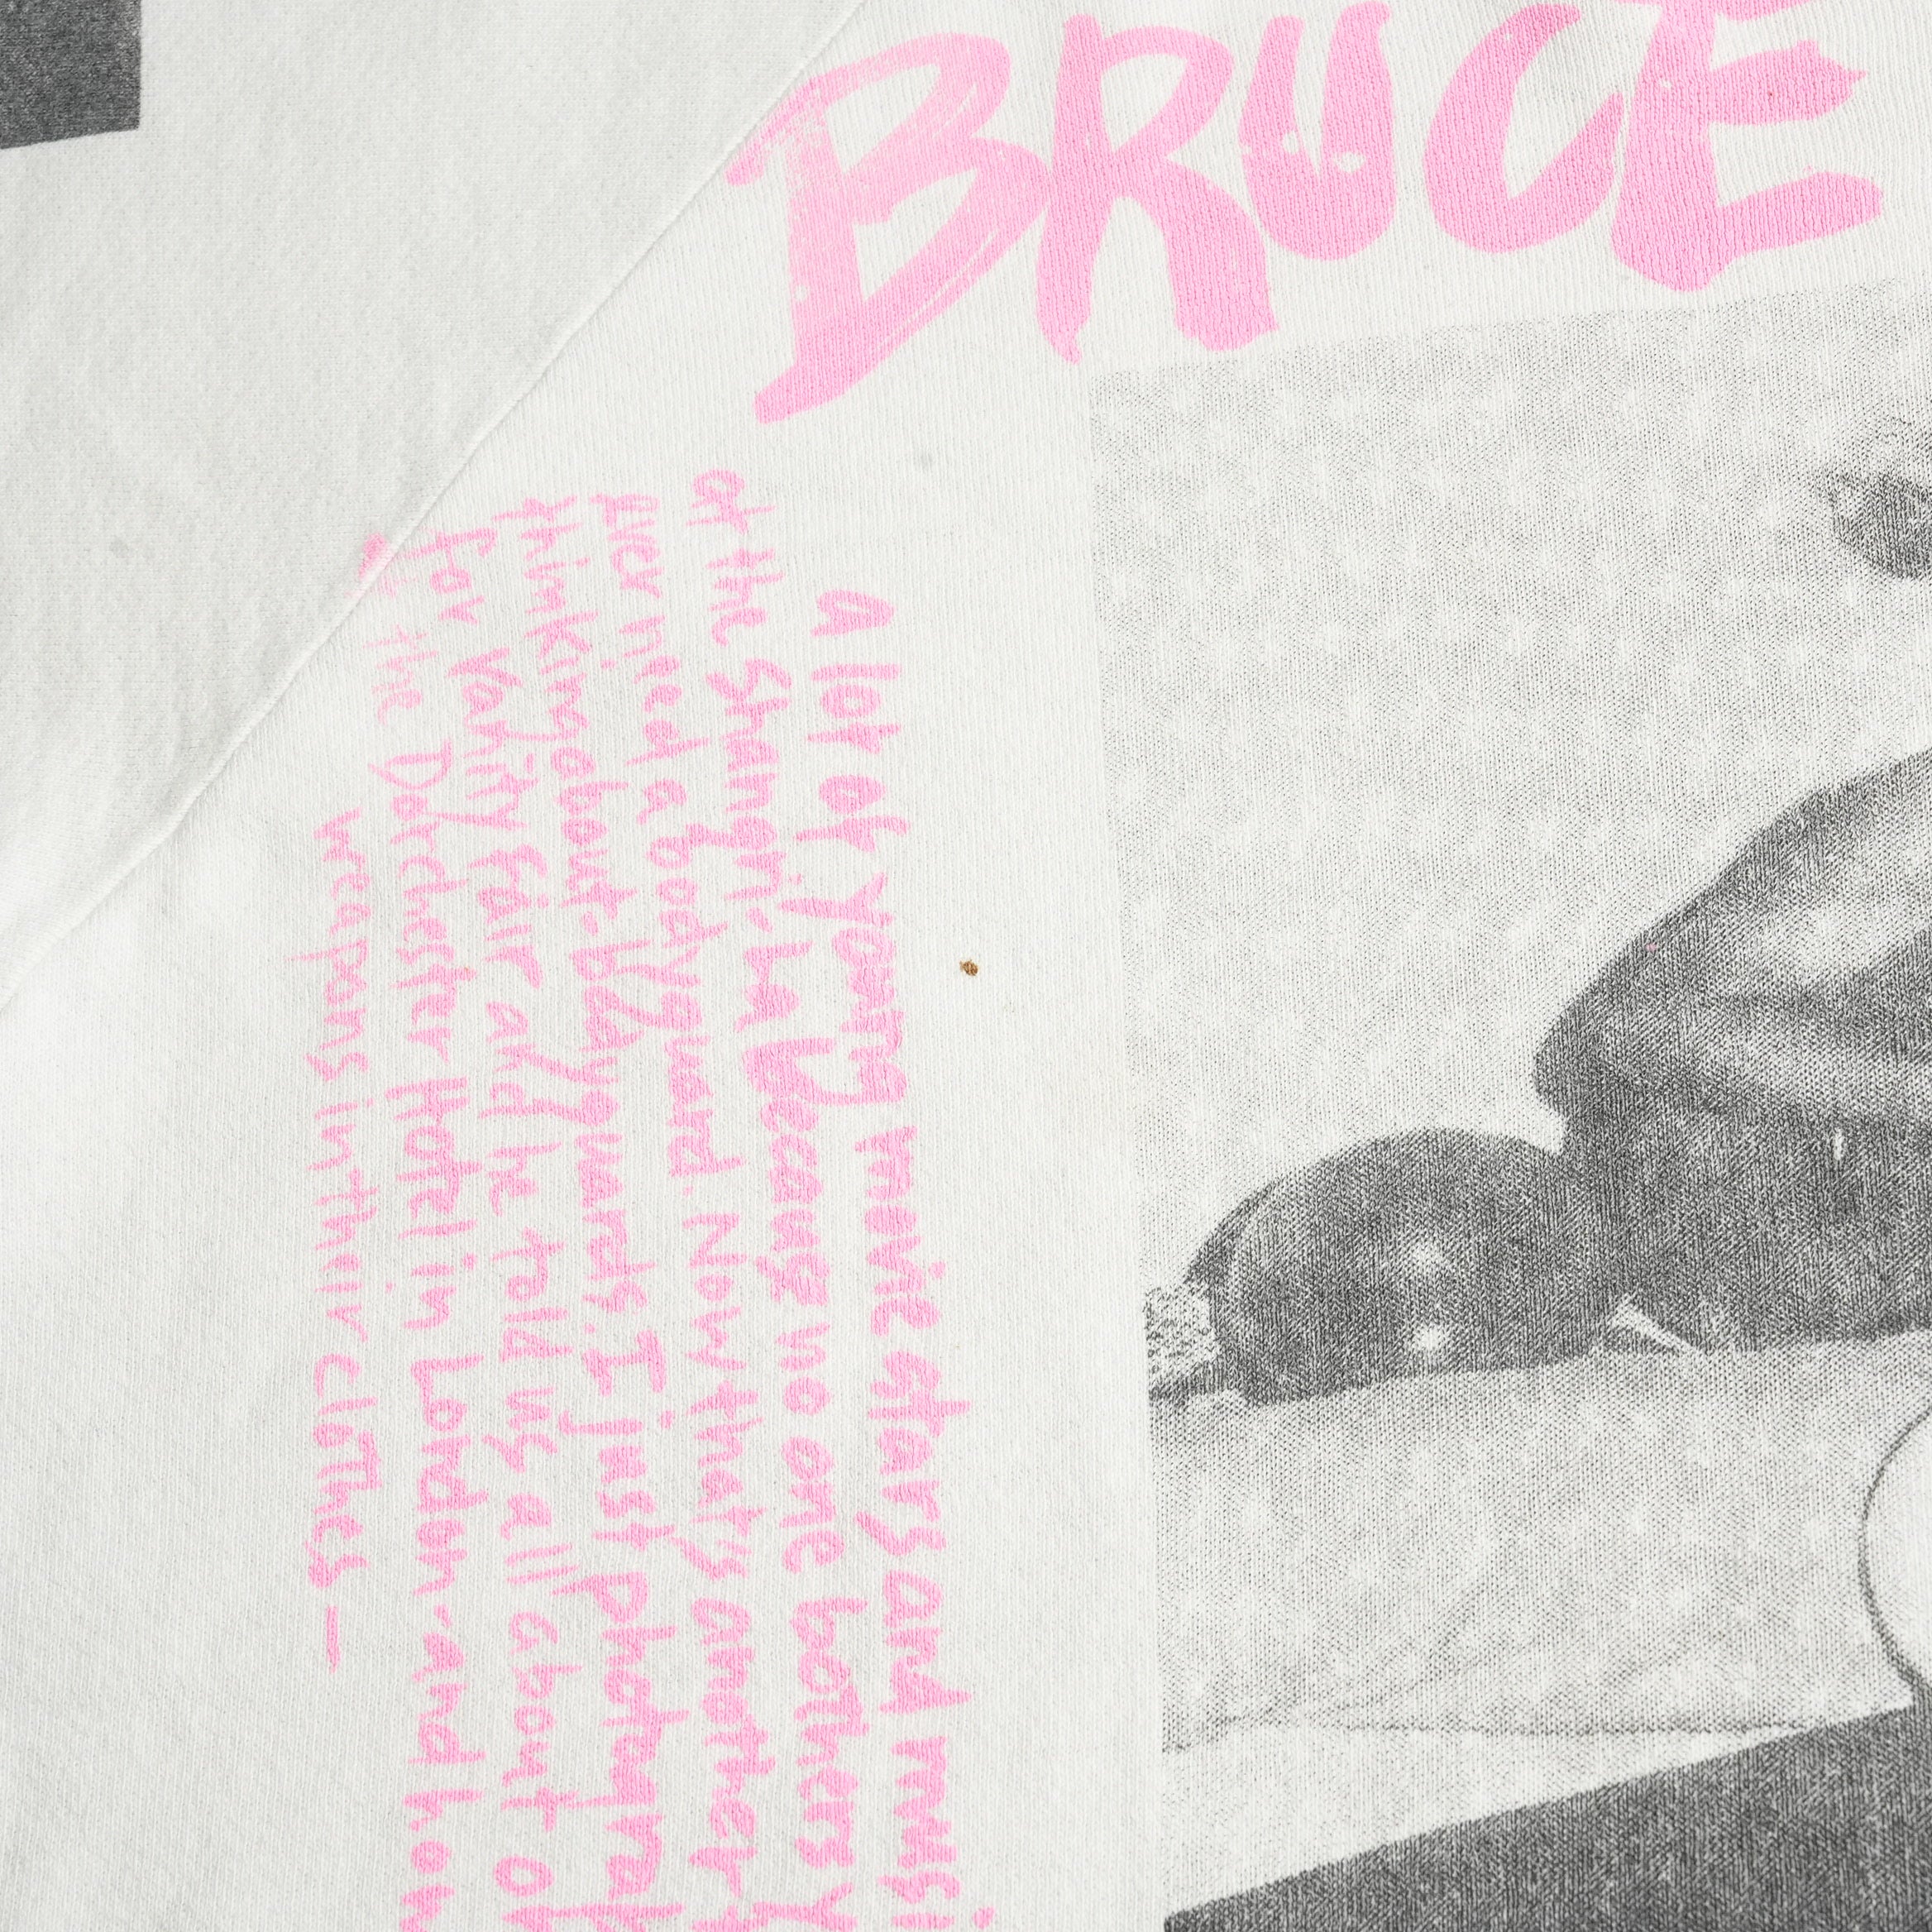 BRUCE
A lot of Young movie stars and musi
at the Shangri-La because no one bothers y
ever need a bodyguard. Now that's another t
thinking about-bodyguards. I just photograph
for Vanity Fair and he told us all about
the Dorchester Hotel in London - and how
weapons in their clothes —